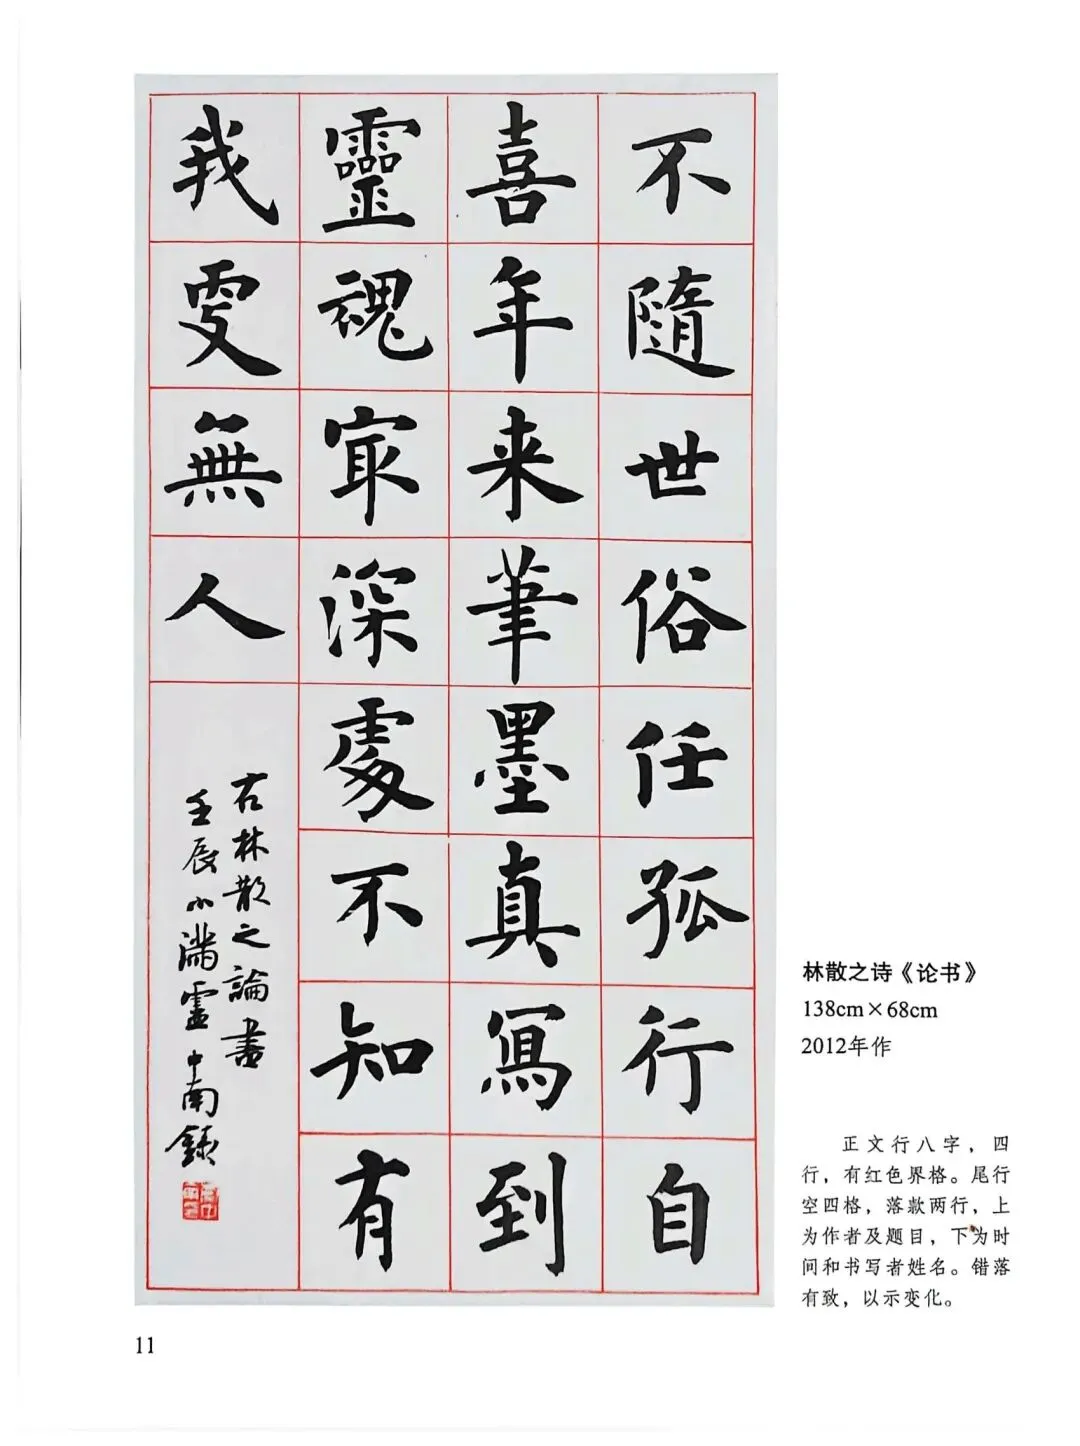 不隨世俗任孤行自
喜年来筆墨真寫到
靈魂冣深處不知有
我更無人
右林散之論書
壬辰小滿靈中南錄
林散之诗《论书》
138cm×68cm
2012年作
正文行八字，四
行，有红色界格。尾行
空四格，落款两行，上
为作者及题目，下为时
间和书写者姓名。错落
有致，以示变化。
11